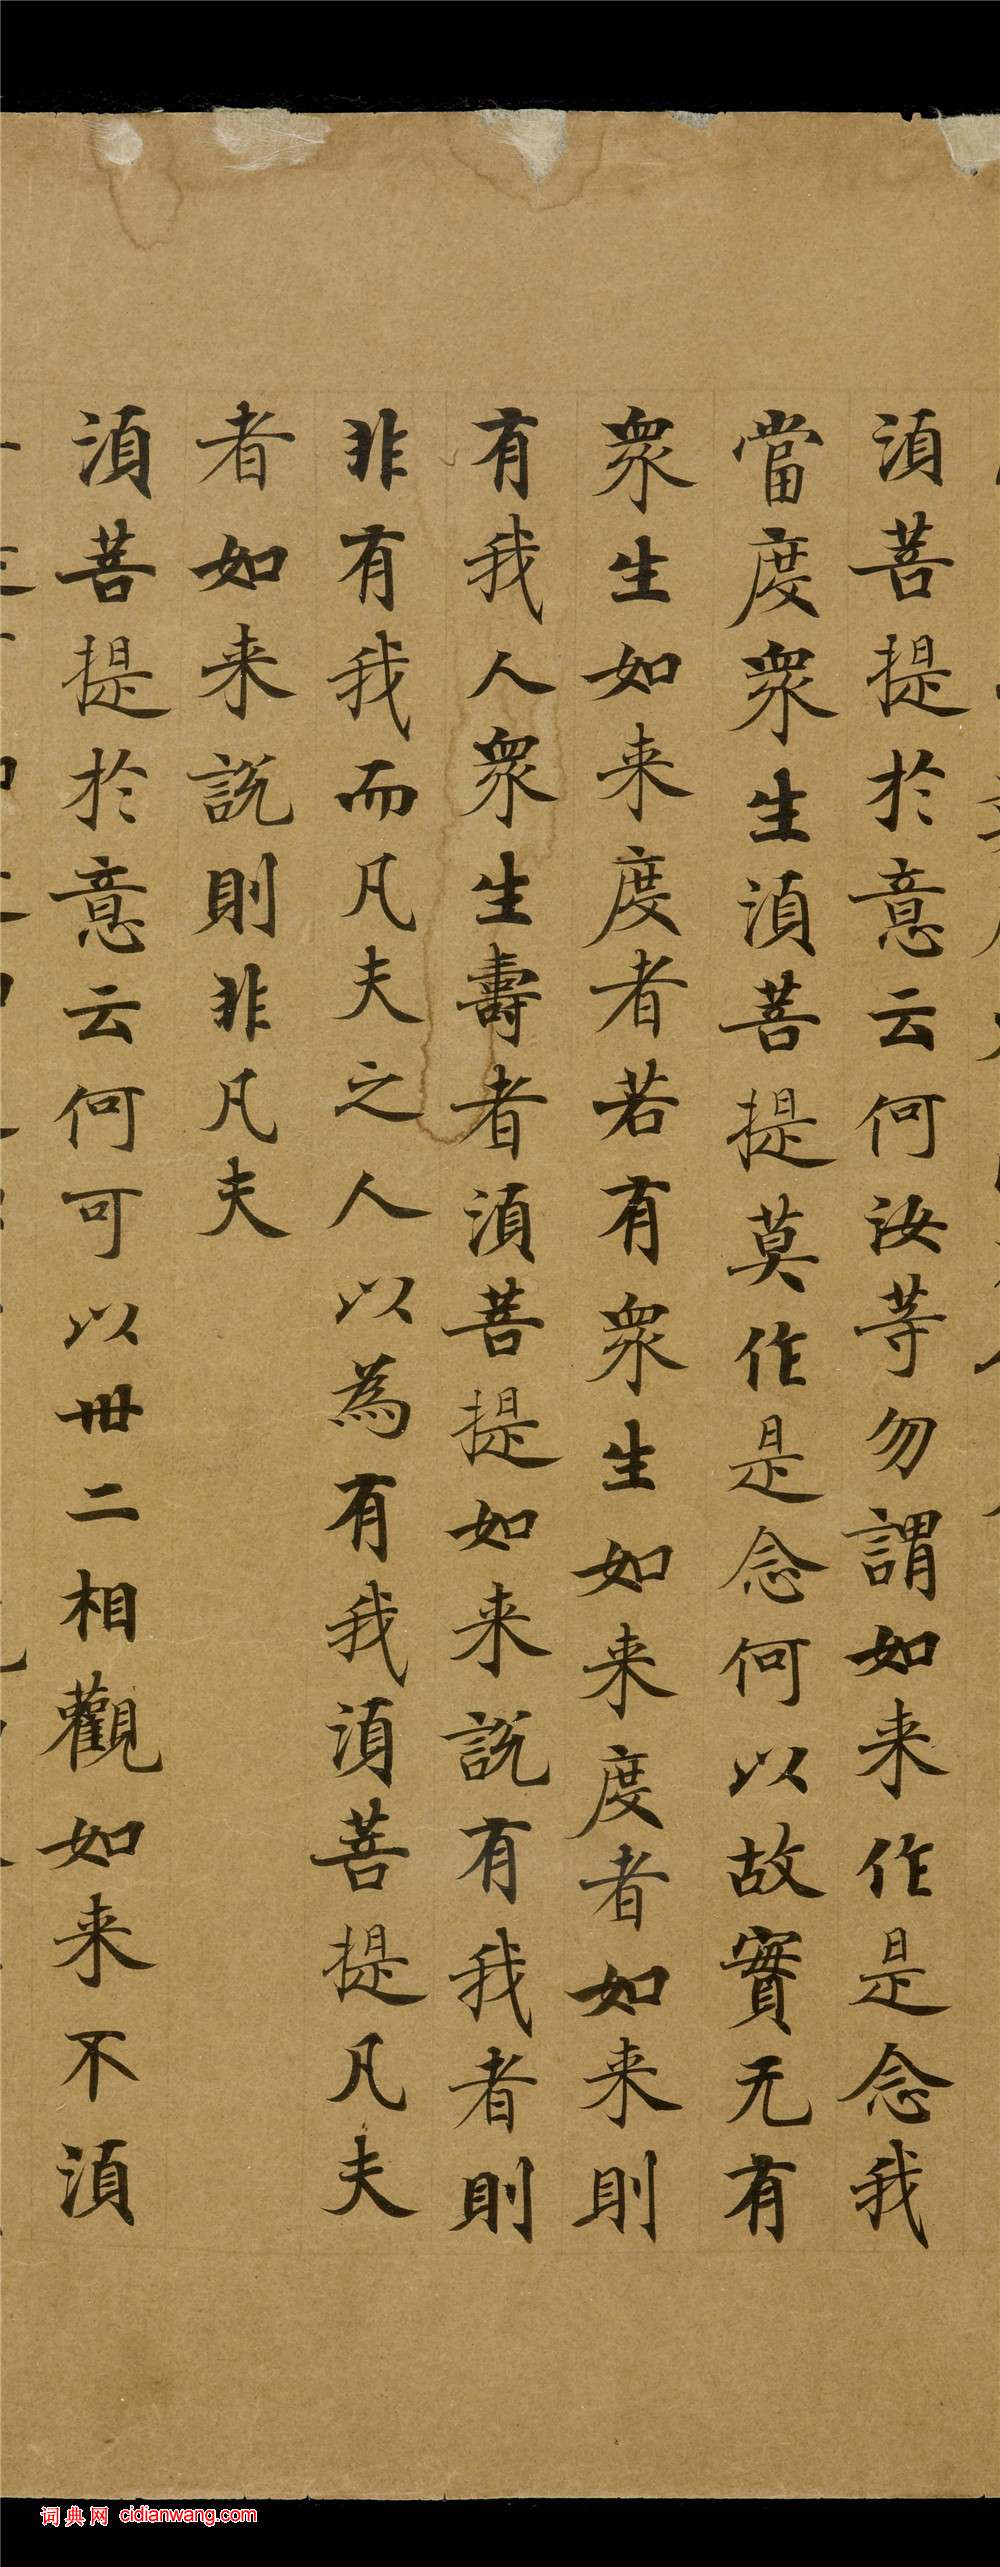 須菩提於意云何汝等勿謂如来作是念我
當度衆生須菩提莫作是念何以故實无有
衆生如来度者若有衆生如来度者如来則
有我人衆生壽者須菩提如来說有我者則
非有我而凡夫之人以為有我須菩提凡夫
者如来說則非凡夫
須菩提於意云何可以卅二相觀如来不須
词典网 cidianwang.com